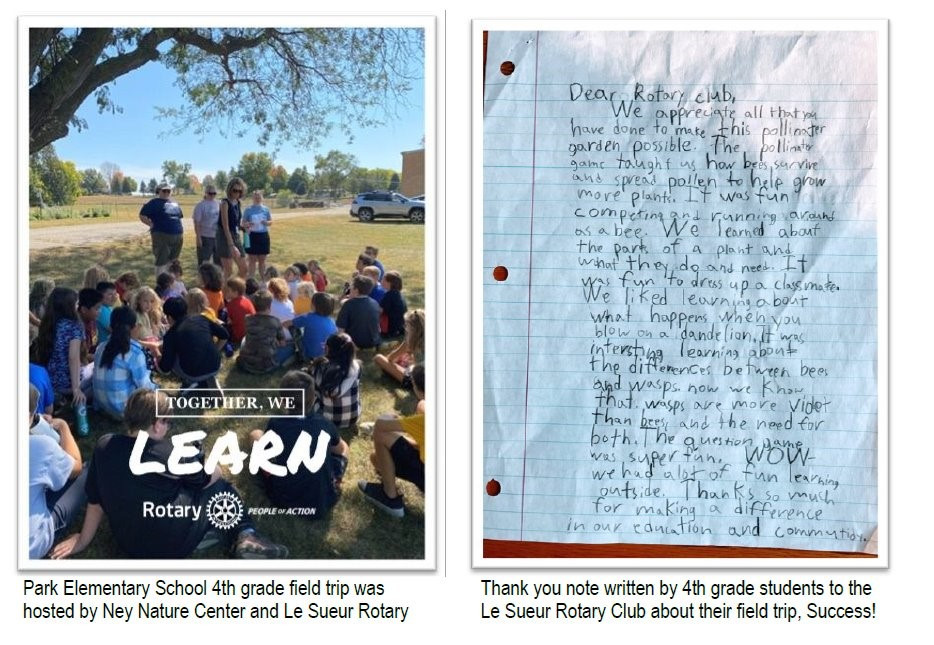 TOGETHER, WE
LEARN
Rotary
PEOPLE OF ACTION
Park Elementary School 4th grade field trip was
hosted by Ney Nature Center and Le Sueur Rotary
Dear Rotary club,
We appreciate all that you
have done to make this pollinater
garden possible. The pollinater
game taught us how bees survive
and spread pollen to help grow
more plants. It was fun
competing and running around
as a bee. We learned about
the parts of a plant and
what they do and need. It
was fun to dress up a classmate.
We liked learning about
what happens when you
blow on a dandelion. It was
intersting learning about
the differences between bees
and wasps. now we know
that wasps are more violet
than bees, and the need for
both. The question game
was super fun. WOW-
we had alot of fun learning
outside. Thanks so much
for making a difference
in our education and commutidy.
Thank you note written by 4th grade students to the
Le Sueur Rotary Club about their field trip, Success!